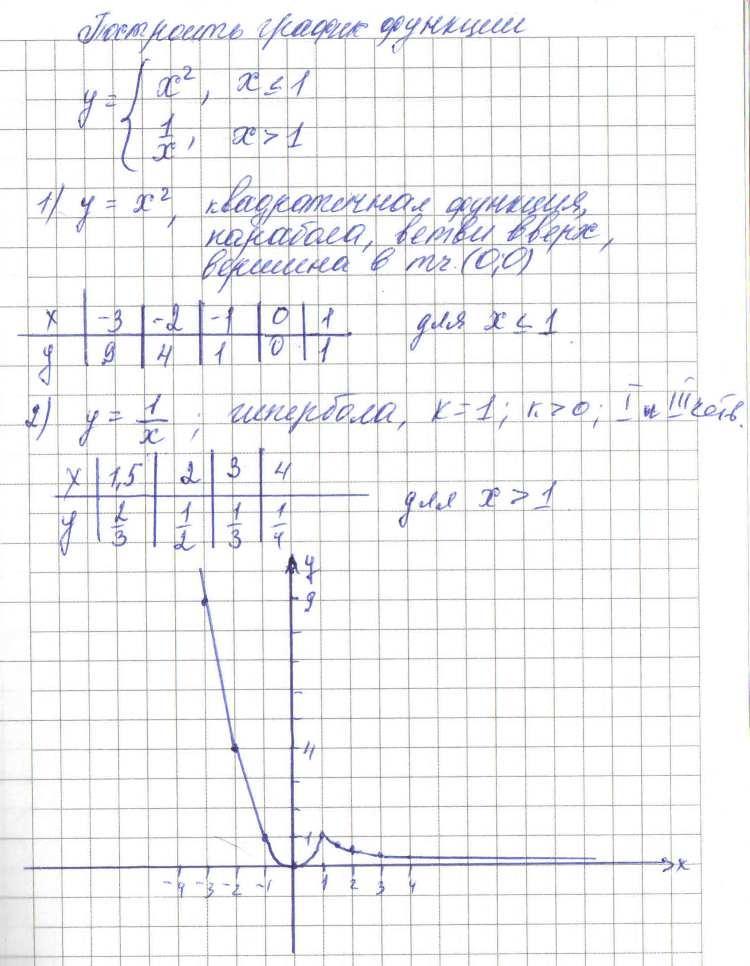 Построить график функции
y = { x², x ≤ 1
1/x, x > 1
1) y = x², квадратичная функция,
парабола, ветви вверх,
вершина в т.(0;0)
x | -3 | -2 | -1 | 0 | 1
y | 9 | 4 | 1 | 0 | 1
для x ≤ 1
2) y = 1/x ; гипербола, k=1; k>0; I и III четв.
x | 1,5 | 2 | 3 | 4
y | 2/3 | 1/2 | 1/3 | 1/4
для x > 1
y
9
4
1
-4 -3 -2 -1 1 2 3 4 x